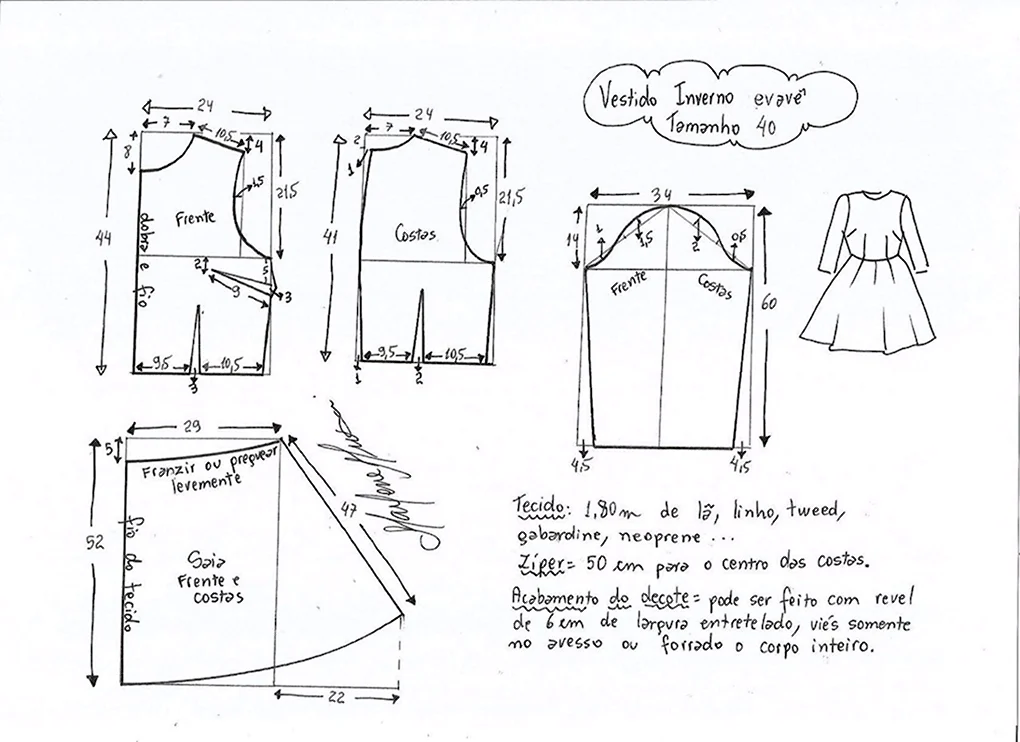 Vestido Inverno evavê
Tamanho 40
24
7
10,5
4
8
1,5
21,5
Frente
44
dobra e fio
2
5
9
3
9,5
10,5
3
24
7
10,5
4
2
1
0,5
21,5
Costas
41
9,5
10,5
1
2
34
14
1
1,5
2
0,5
Frente
Costas
60
4,5
4,5
29
5
Franzir ou preguear
levemente
47
52
fio do tecido
Saia
Frente e
costas
22
Tecido: 1,80m de lã, linho, tweed,
gabardine, neoprene ...
Zíper= 50 cm para o centro das costas.
Acabamento do decote= pode ser feito com revel
de 6 cm de largura entretelado, viés somente
no avesso ou forrado o corpo inteiro.